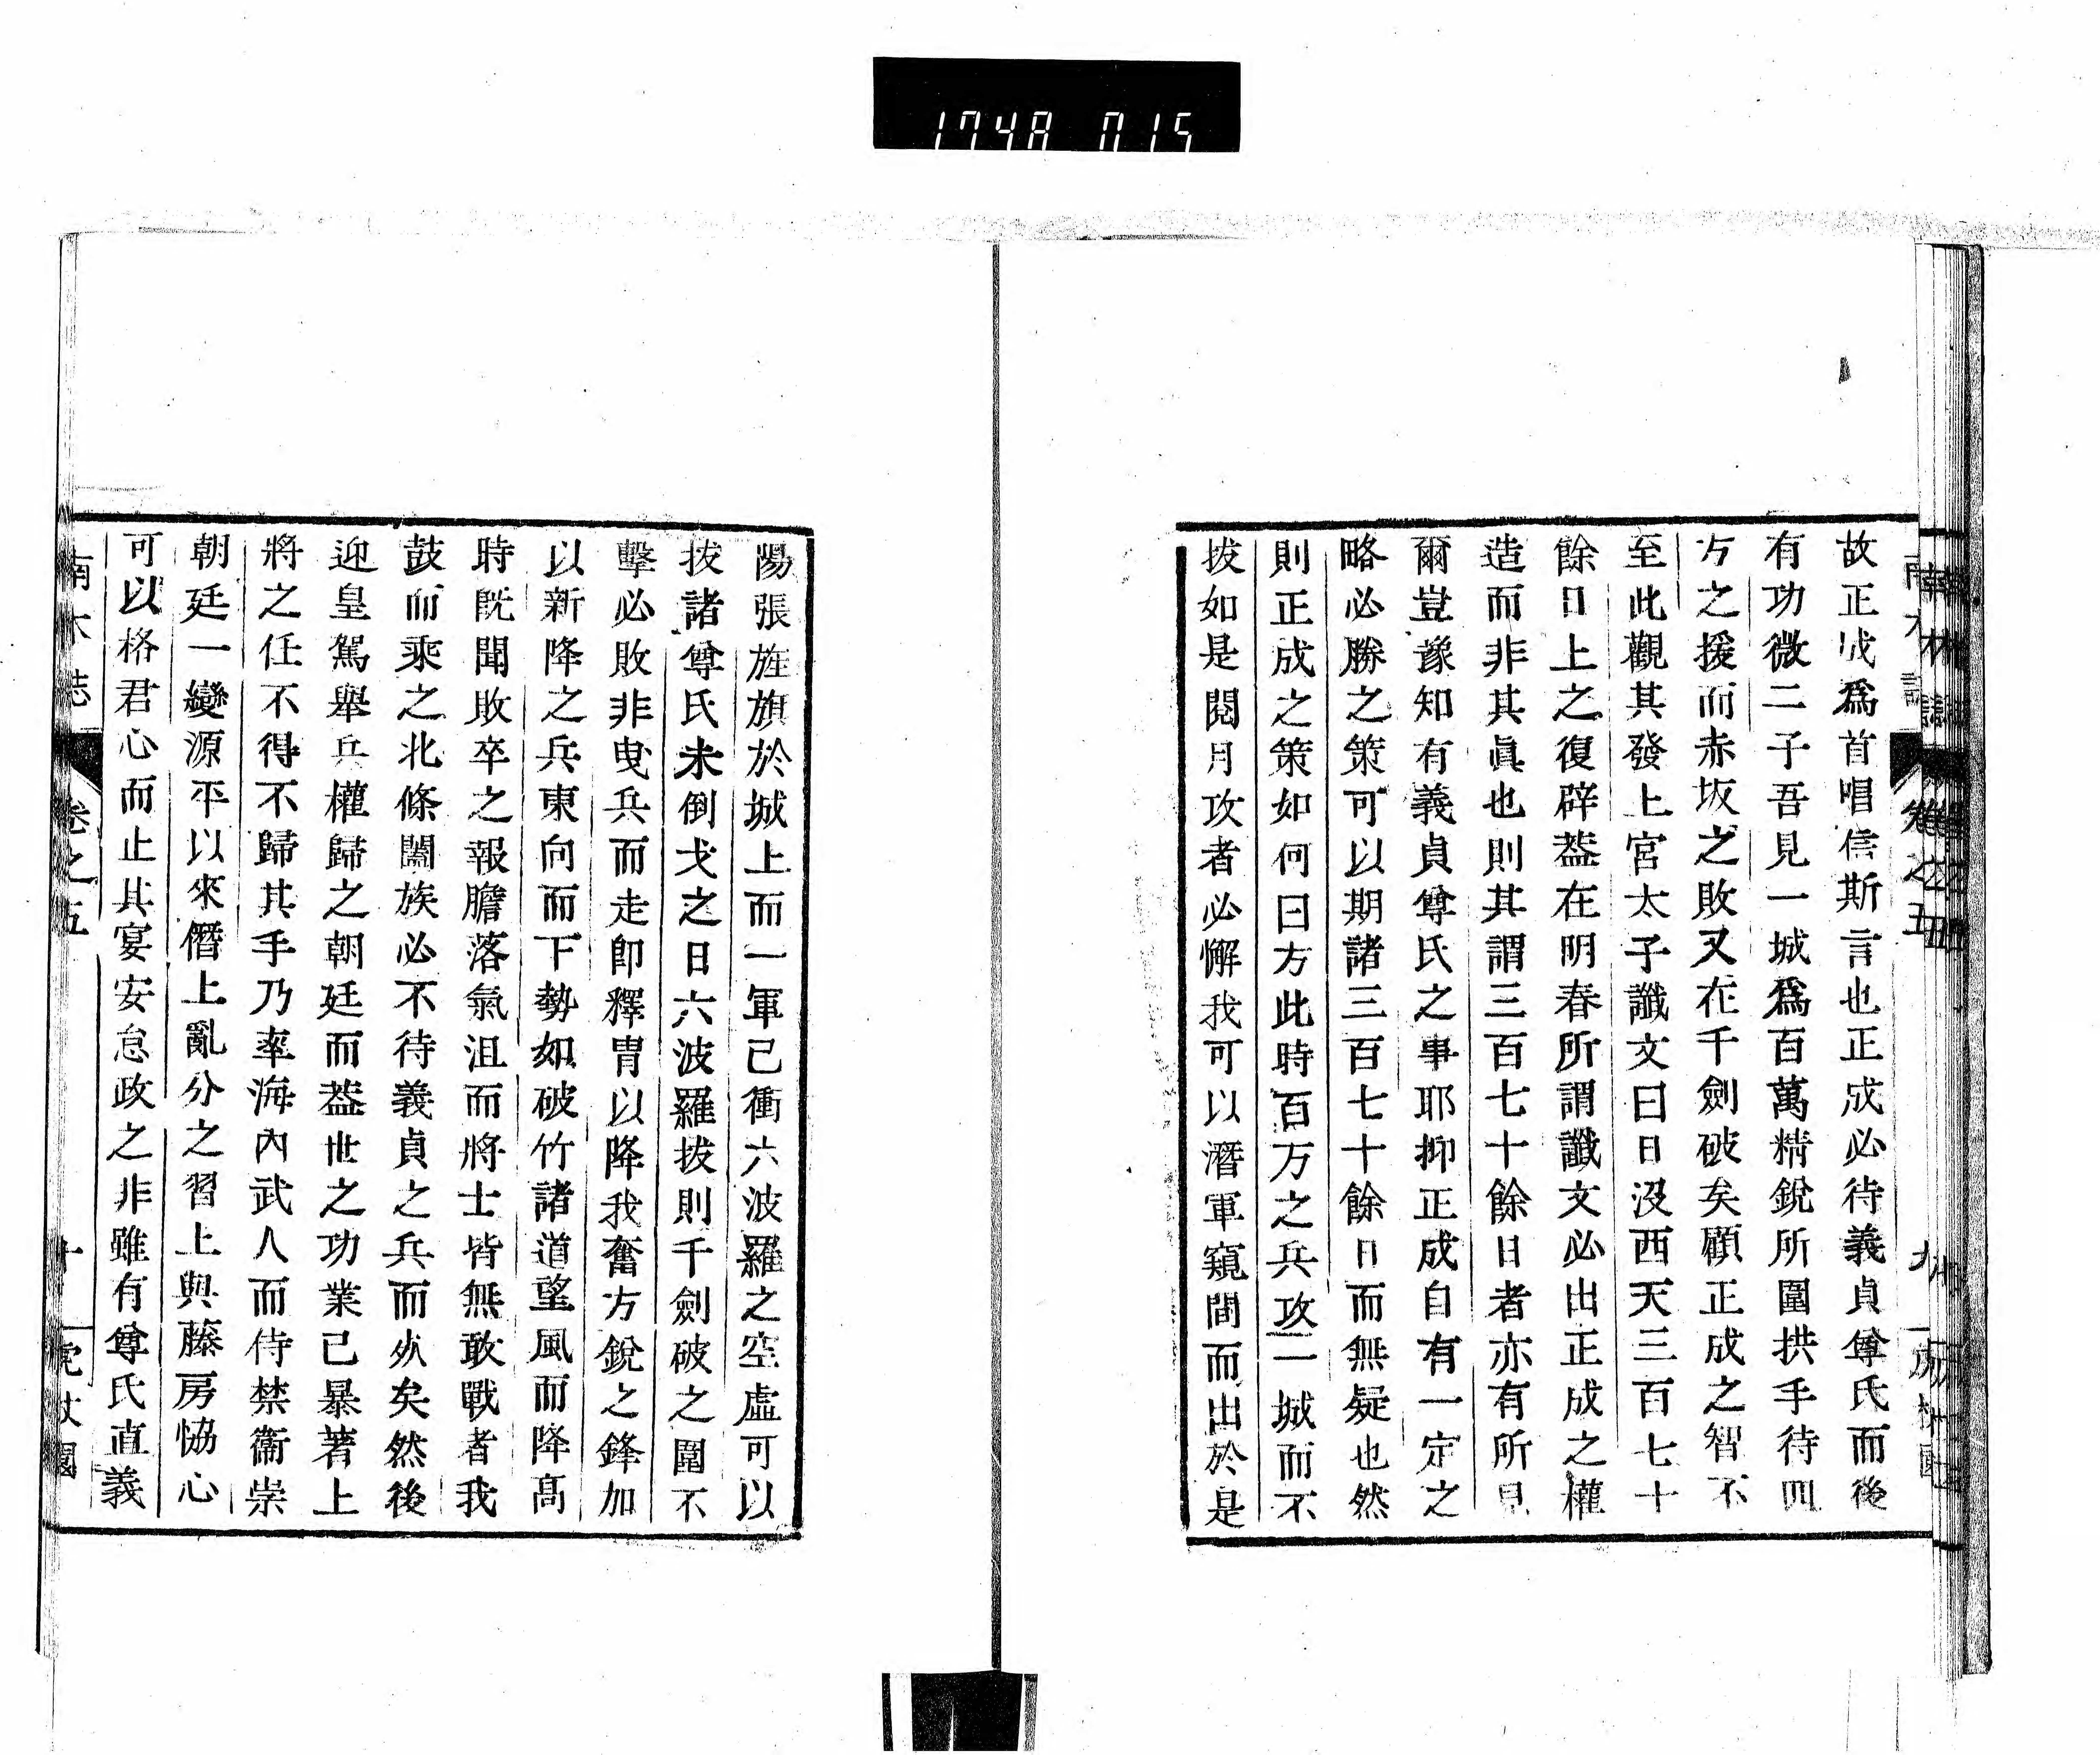 1748 015
南木誌 卷之五 九
故正成爲首唱信斯言也正成必待義貞尊氏而後
有功微二子吾見一城爲百萬精銳所圍拱手待四
方之援而赤坂之敗又在千劍破矣顧正成之智不
至此觀其發上宮太子讖文曰日沒西天三百七十
餘日上之復辟葢在明春所謂讖文必出正成之權
造而非其眞也則其謂三百七十餘日者亦有所見
爾豈豫知有義貞尊氏之事耶抑正成自有一定之
略必勝之策可以期諸三百七十餘日而無疑也然
則正成之策如何曰方此時百万之兵攻一城而不
拔如是閱月攻者必懈我可以潛軍窺間而出於是
陽張旌旗於城上而一軍已衝六波羅之空虛可以
拔諸尊氏未倒戈之日六波羅拔則千劍破之圍不
擊必敗非曳兵而走卽釋冑以降我奮方銳之鋒加
以新降之兵東向而下勢如破竹諸道望風而降高
時旣聞敗卒之報膽落氣沮而將士皆無敢戰者我
鼓而乘之北條闔族必不待義貞之兵而烖矣然後
迎皇駕舉兵權歸之朝廷而葢世之功業已暴著上
將之任不得不歸其手乃率海內武人而侍禁衞崇
朝廷一變源平以來僭上亂分之習上與藤房恊心
可以格君心而止其宴安怠政之非雖有尊氏直義
南木誌 卷之五 十